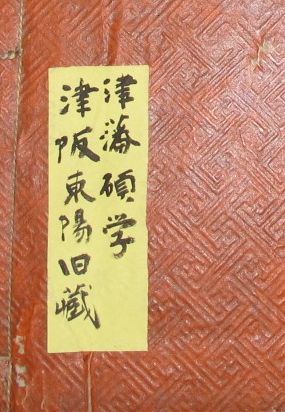 津藩碩学
津阪東陽旧藏